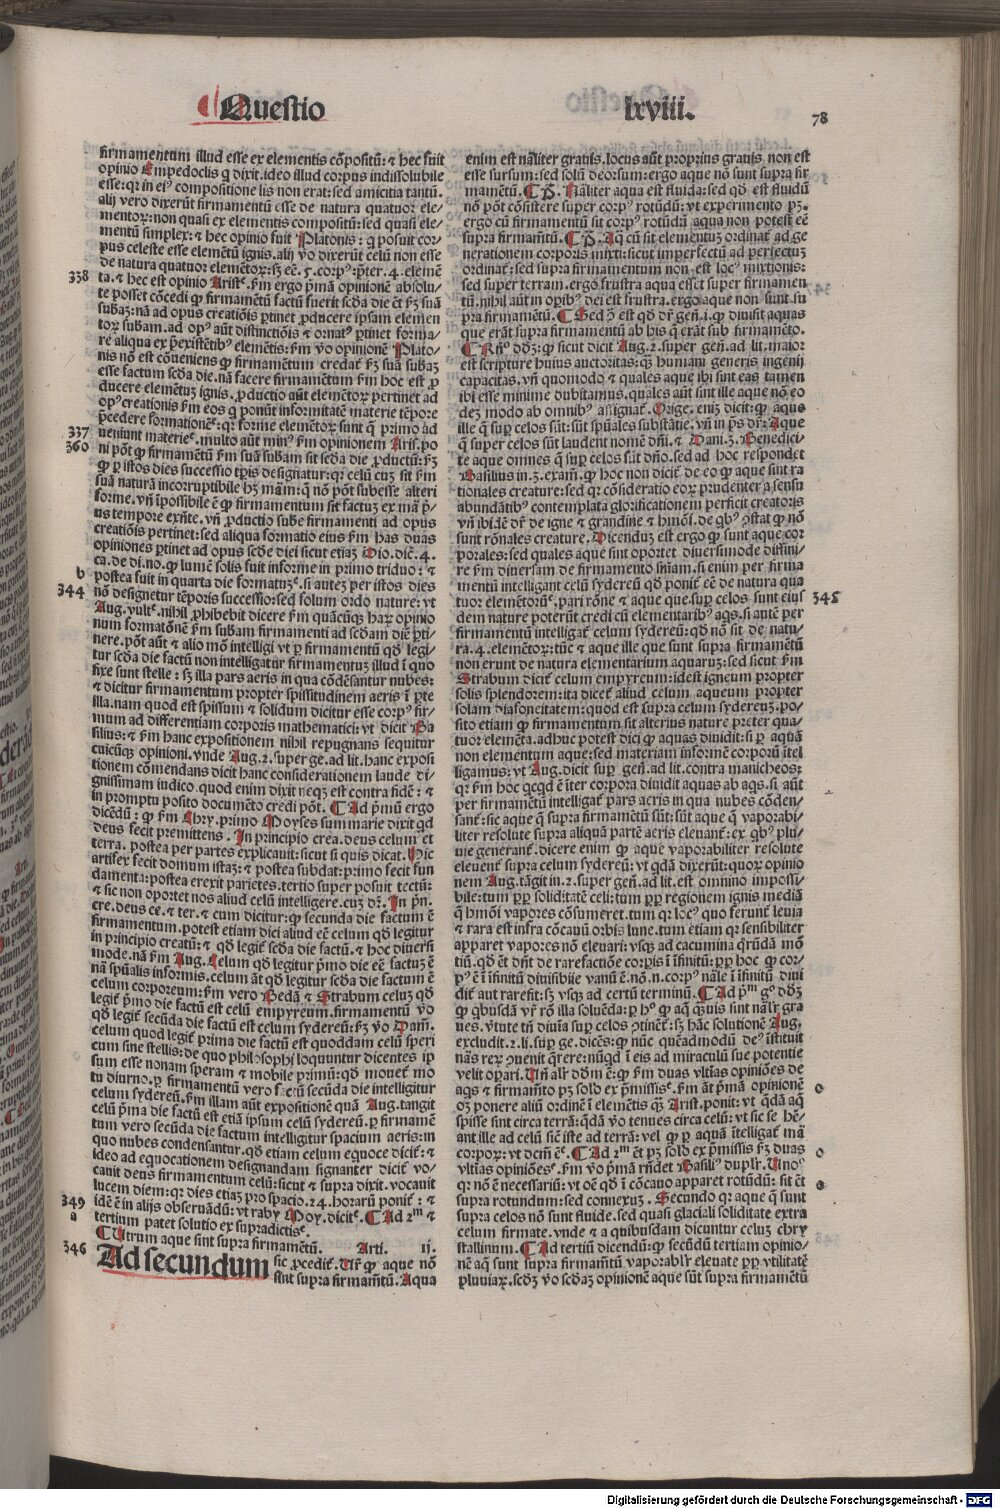 Questio lxviii. 78
firmamentum illud esse ex elementis cōpositū: ⁊ hec fuit
opinio Empedoclis q̄ dixit. ideo illud corpus indissolubile
esse: qr in eiꝰ compositione lis non erat: sed amicitia tantū.
alij vero dixerūt firmamentū esse de natura quatuor ele-
mentorꝝ: non quasi ex elementis compositū: sed quasi ele-
mentū simplex: ⁊ hec opinio fuit Platonis: q̄ posuit cor-
pus celeste esse elemētū ignis. alij v̄o dixerūt celū non esse
de natura quatuor elemētoꝝ: sꝫ eē .5. corpꝰ p̄ter .4. elemē
338 ta. ⁊ hec est opinio Aristꝭ. Fm ergo p̄mā opinionē absolu-
te posset cōcedi ꝙ firmamētū factū fuerit scd̄a die ēt fꝫ suā
subaꝫ: nā ad opus creationis ꝑtinet ꝓducere ipsam elemen
toꝝ subam. ad opꝰ aūt distinctiōis ⁊ ornatꝰ ꝑtinet forma-
re aliqua ex p̄existētibꝰ elemētis: fm v̄o opinionē Plato-
nis nō est cōueniens ꝙ firmamētum credat̄ fꝫ suā subaꝫ
esse factum scd̄a die. nā facere firmamētum fm hoc est ꝓ
ducere elemētuꝫ ignis. ꝓductio aūt elemētoꝝ pertinet ad
opꝰ creationis fm eos q̄ ponūt informitatē materie tēpore
p̄cedere formationē: qr forme elemētoꝝ sunt q̄ primo ad
337 ueniunt materieꝭ. multo aūt minꝰ fm opinionem Aris. po
360 ni pōt ꝙ firmamētū fm suā subam sit scd̄a die ꝓductū: fꝫ
ꝙ ꝑ istos dies successio tꝑis designatur: qr celū cuꝫ sit fm
suā naturā incorruptibile hꝫ mām: q̄ nō pōt subesse alteri
forme. vn̄ īpossibile ē ꝙ firmamentum sit factuꝫ ex mā p̄-
us tempore exn̄te. vn̄ ꝓductio sube firmamenti ad opus
creatiōis pertinet: sed aliqua formatio eius fm has duas
opiniones ꝑtinet ad opus scd̄e diei sicut etiaꝫ Dio. dic̄. 4.
ca. de di. no. ꝙ lumē solis fuit informe in primo triduo: ⁊
b postea fuit in quarta die formatuꝫꝭ. si autez per istos dies
344 nō designetur tēporis successio: sed solum ordo nature: vt
Aug. vultꝭ. nihil ꝓhibebit dicere fm quācūqꝫ harꝝ opinio
num formatōnē fm subam firmamenti ad scd̄am diē ꝑti-
nere. pōt aūt ⁊ alio mō intelligi vt ꝑ firmamentū qd̄ legi-
tur scd̄a die factū non intelligatur firmamentuꝫ illud ī quo
fixe sunt stelle: sꝫ illa pars aeris in qua cōdēsantur nubes:
⁊ dicitur firmamentum propter spissitudinem aeris ī ꝑte
illa. nam quod est spissum ⁊ solidum dicitur esse corpꝰ fir-
mum ad differentiam corporis mathematici: vt dicit Ba
silius: ⁊ fm hanc expositionem nihil repugnans sequitur
cuicūqꝫ opinioni. vnde Aug. 2. super ge. ad lit. hanc exposi
tionem cōmendans dicit hanc considerationem laude di-
gnissimam iudico. quod enim dixit neqꝫ est contra fidē: ⁊
in promptu posito documēto credi pōt. ¶ Ad p̄mū ergo
dicēdū: ꝙ fm Chry. primo Moyses summarie dixit qd
deus fecit premittens. In principio crea. deus celum et
terra. postea per partes explicauit: sicut si quis dicat. Hic
artifex fecit domum istaꝫ: ⁊ postea subdat: primo fecit fun
damenta: postea erexit parietes. tertio super posuit tectū:
⁊ sic non oportet nos aliud celū intelligere. cuꝫ dr̄. In p̄n.
cre. deus ce. ⁊ ter. ⁊ cum dicitur: ꝙ secunda die factum ē
firmamentum. potest etiam dici aliud eē celum qd̄ legitur
in principio creatū: ⁊ qd̄ legit̄ scd̄a die factū. ⁊ hoc diuersi
mode. nā fm Aug. Celum qd̄ legitur p̄mo die eē factuꝫ ē
nā spūalis informis. celum āt qd̄ legitur scd̄a die factum ē
celum corporeum: fm vero Bedā ⁊ Strabum celuꝫ qd̄
legit̄ p̄mo die factū est celū empyreum. firmamentū v̄o
qd̄ legit̄ secūda die factū est celum sydereū: fꝫ v̄o Dam̄.
celum quod legit̄ prima die factū est quoddam celū speri
cum sine stellis: de quo phil'osophi loquuntur dicentes ip
sum esse nonam speram ⁊ mobile primū: qd̄ mouet̄ mo
tu diurno. ꝑ firmamentū vero factū secūda die intelligitur
celum sydereū. fm illam aūt expositionē quā Aug. tangit
celū p̄ma die factū est etiā ipsum celū sydereū. ꝑ firmamē
tum vero secūda die factum intelligitur spacium aeris: in
quo nubes condensantur. qd̄ etiam celum equoce dicit̄: ⁊
ideo ad equocationem designandam signanter dicit̄ vo-
cauit deus firmamentum celū: sicut ⁊ supra dixit. vocauit
lucem diem: qr dies etiaꝫ pro spacio .24. horarū ponit̄: ⁊
349 idē ē in alijs obseruādū: vt raby Moy. dicitꝭ. ¶ Ad 2ᵐ ⁊
a tertium patet solutio ex supradictisꝭ.
¶ Utrum aque sint supra firmamētū. Arti. ij.
346 Ad secundum sic ꝓcedit̄. Ur̄ ꝙ aque nō
sint supra firmam̄tū. Aqua
enim est nāliter grauis. locus aūt proprius grauis non est
esse sursum: sed solū deorsum: ergo aque nō sunt supra fir
mamētū. ¶ P̄. Nāliter aqua est fluida: sed qd̄ est fluidū
nō pōt cōsistere super corpꝰ rotūdū: vt experimento pꝫ.
ergo cū firmamentū sit corpꝰ rotūdū aqua non potest eē
supra firmam̄tū. ¶ P̄. Aq̄ cū sit elementuꝫ ordinat̄ ad ge
nerationem corporis mixti: sicut imperfectū ad perfectuꝫ
ordinat̄: sed supra firmamentum non est locꝰ mixtionis:
sed super terram. ergo frustra aqua esset super firmamen
tū. nihil aūt in oꝑibꝰ dei est frustra. ergo aque non sunt su
pra firmamētū. ¶ Sed ꝫ est qd̄ dr̄ gen̄. i. ꝙ diuisit aquas
que erāt supra firmamentū ab his q̄ erāt sub firmamēto.
¶ Rn̄º dd̄ꝫ: ꝙ sicut dicit Aug. 2. super gen̄. ad lit. maior
est scripture huius auctoritas: qꝫ humani generis ingenij
capacitas. vn̄ quomodo ⁊ quales aque ibi sunt eas tamen
ibi esse minime dubitamus. quales aūt sint ille aque nō eo
deꝫ modo ab omnibꝰ assignat̄. Orige. eniꝫ dicit: ꝙ aque
ille q̄ suꝑ celos sūt: sūt spūales substātie. vn̄ in ps̄ dr̄: Aque
q̄ super celos sūt laudent nomē dn̄i. ⁊ Dani. 3. Benedici-
te aque omnes q̄ suꝑ celos s̄ūt dn̄o. sed ad hoc respondet
Basilius in .3. exam̄. ꝙ hoc non dicit̄ de eo ꝙ aque sint ra
tionales creature: sed qr cōsideratio eoꝝ prudenter a sensū
abundātibꝰ contemplata glorificationem perficit creatoris
vn̄ ibidē dr̄ de igne ⁊ grandine ⁊ hmōi. de qbꝰ ꝯstat ꝙ nō
sunt rōnales creature. Dicenduꝫ est ergo ꝙ sunt aque cor
porales: sed quales aque sint oportet diuersimode diffini-
re fm diuersam de firmamento sn̄iam. si enim per firma
mentū intelligant celū sydereū qd̄ ponit̄ eē de natura qua
tuor elemētorūꝭ. pari rōne ⁊ aque que suꝑ celos sunt eius 345
dem nature poterūt credi cū elementaribꝰ aqs. si autē per
firmamentū intelligat̄ celum sydereū: qd̄ nō sit de natu-
ra .4. elemētoꝝ: tūc ⁊ aque ille que sunt supra firmamētū
non erunt de natura elementarium aquaruꝫ: sed sicut fm
Strabum dicit̄ celum empyreum: idest igneum propter
solis splendorem: ita dicet̄ aliud celum aqueum propter
solam diafoneitatem: quod est supra celum sydereuꝫ. po-
sito etiam ꝙ firmamentum sit alterius nature preter qua-
tuor elemēta. adhuc potest dici ꝙ aquas diuidit: si ꝑ aquā
non elementum aque: sed materiam informē corporū ītel
ligamus: vt Aug. dicit suꝑ gen̄. ad lit. contra manicheos:
qr fm hoc qcqd̄ ē iter corpora diuidit aquas ab aqs. si aūt
per firmamētū intelligat̄ pars aeris in qua nubes cōden-
sant̄: sic aque q̄ supra firmamētū sūt: sūt aque q̄ vaporabi-
liter resolute supra aliquā partē aeris eleuant̄: ex qbꝰ plu-
uie generant̄. dicere enim ꝙ aque vaporabiliter resolute
eleuent̄ supra celum sydereū: vt qdā dixerūt: quoꝝ opinio
nem Aug. tāgit in .2. super gen̄. ad lit. est omnino impossi-
bile: tum ꝓꝑ soliditatē celi: tum ꝓꝑ regionem ignis mediā
q̄ hmōi vapores cōsumeret. tum qr locꝰ quo ferunt̄ leuia
⁊ rara est infra cōcauū orbis lune. tum etiam qr sensibiliter
apparet vapores nō eleuari: vsqꝫ ad cacumina q̄rūdā mō
tiū. qd̄ ēt dn̄t de rarefactiōe corpis ī īfinitū: ꝓꝑ hoc ꝙ cor-
pꝰ ē ī īfinitū diuisibile vanū ē. nō. n. corpꝰ nāle ī īfinitū diui
dit̄ aut rarefit: sꝫ vsqꝫ ad certū terminū. ¶ Ad p̄ᵐ gº dd̄ꝫ
ꝙ qbusdā vr̄ rō illa soluēda: ꝑ hº ꝙ aq̄ q̄uis sint nālr̄ gra
ues. v̄tute tn̄ diuīa suꝑ celos ꝯtinēt̄: sꝫ hāc solutionē Aug.
excludit. 2. li. suꝑ ge. dicēs: ꝙ nūc quēadmodū deꝰ īstituit
nās reꝝ ꝯuenit q̄rere: nūqd̄ ī eis ad miraculū sue potentie
velit oꝑari. Un̄ alr̄ dd̄m ē: ꝙ fm duas vltīas opiniōes de
aqs ⁊ firmam̄to pꝫ sol'o ex p̄missisꝭ. fm āt p̄mā opinionē
oꝫ ponere aliū ordinē ī elemētis qꝫ Arist. ponit: vt qdā aq̄
spisse sint circa terrā: qdā v̄o tenues circa celū: vt sic se hē-
ant ille ad celū sic̄ iste ad terrā: vel ꝙ ꝑ aquā ītelligat̄ mā
corpoꝝ: vt dcm̄ ēꝭ. ¶ Ad 2ᵐ ēt pꝫ sol'o ex p̄missis fꝫ duas
vltīas opiniōesꝭ. fm v̄o p̄mā rn̄det Basiliꝰ duplr̄. Unoº
qr nō ē necessariū: vt oē qd̄ ī cōcauo apparet rotūdū: sit ēt
supra rotundum: sed connexuꝫ. Secundo qr aque q̄ sunt
supra celos nō sunt fluide. sed quasi glaciali soliditate extra
celum firmate. vnde ⁊ a quibusdam dicuntur celuꝫ chry
stallinum. ¶ Ad tertiū dicendū: ꝙ secūdū tertiam opinio-
nē aq̄ sunt supra firmam̄tū vaporablr̄ eleuate ꝓꝑ vtilitatē
pluuiaꝝ. scd̄ꝫ v̄o scd̄aꝫ opinionē aque sūt supra firmamētū
Digitalisierung gefördert durch die Deutsche Forschungsgemeinschaft - DFG